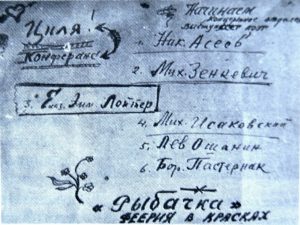 Циля!
Конферанс!
Начинаем
1. Ник. Асеев
2. Мих. Зенкевич
3. Елиз. Эм. Лойтер
4. Мих. Исаковский
5. Лев Ошанин
6. Бор. Пастернак
„Рыбачка“
ФЕЕРИЯ В КРАСКАХ